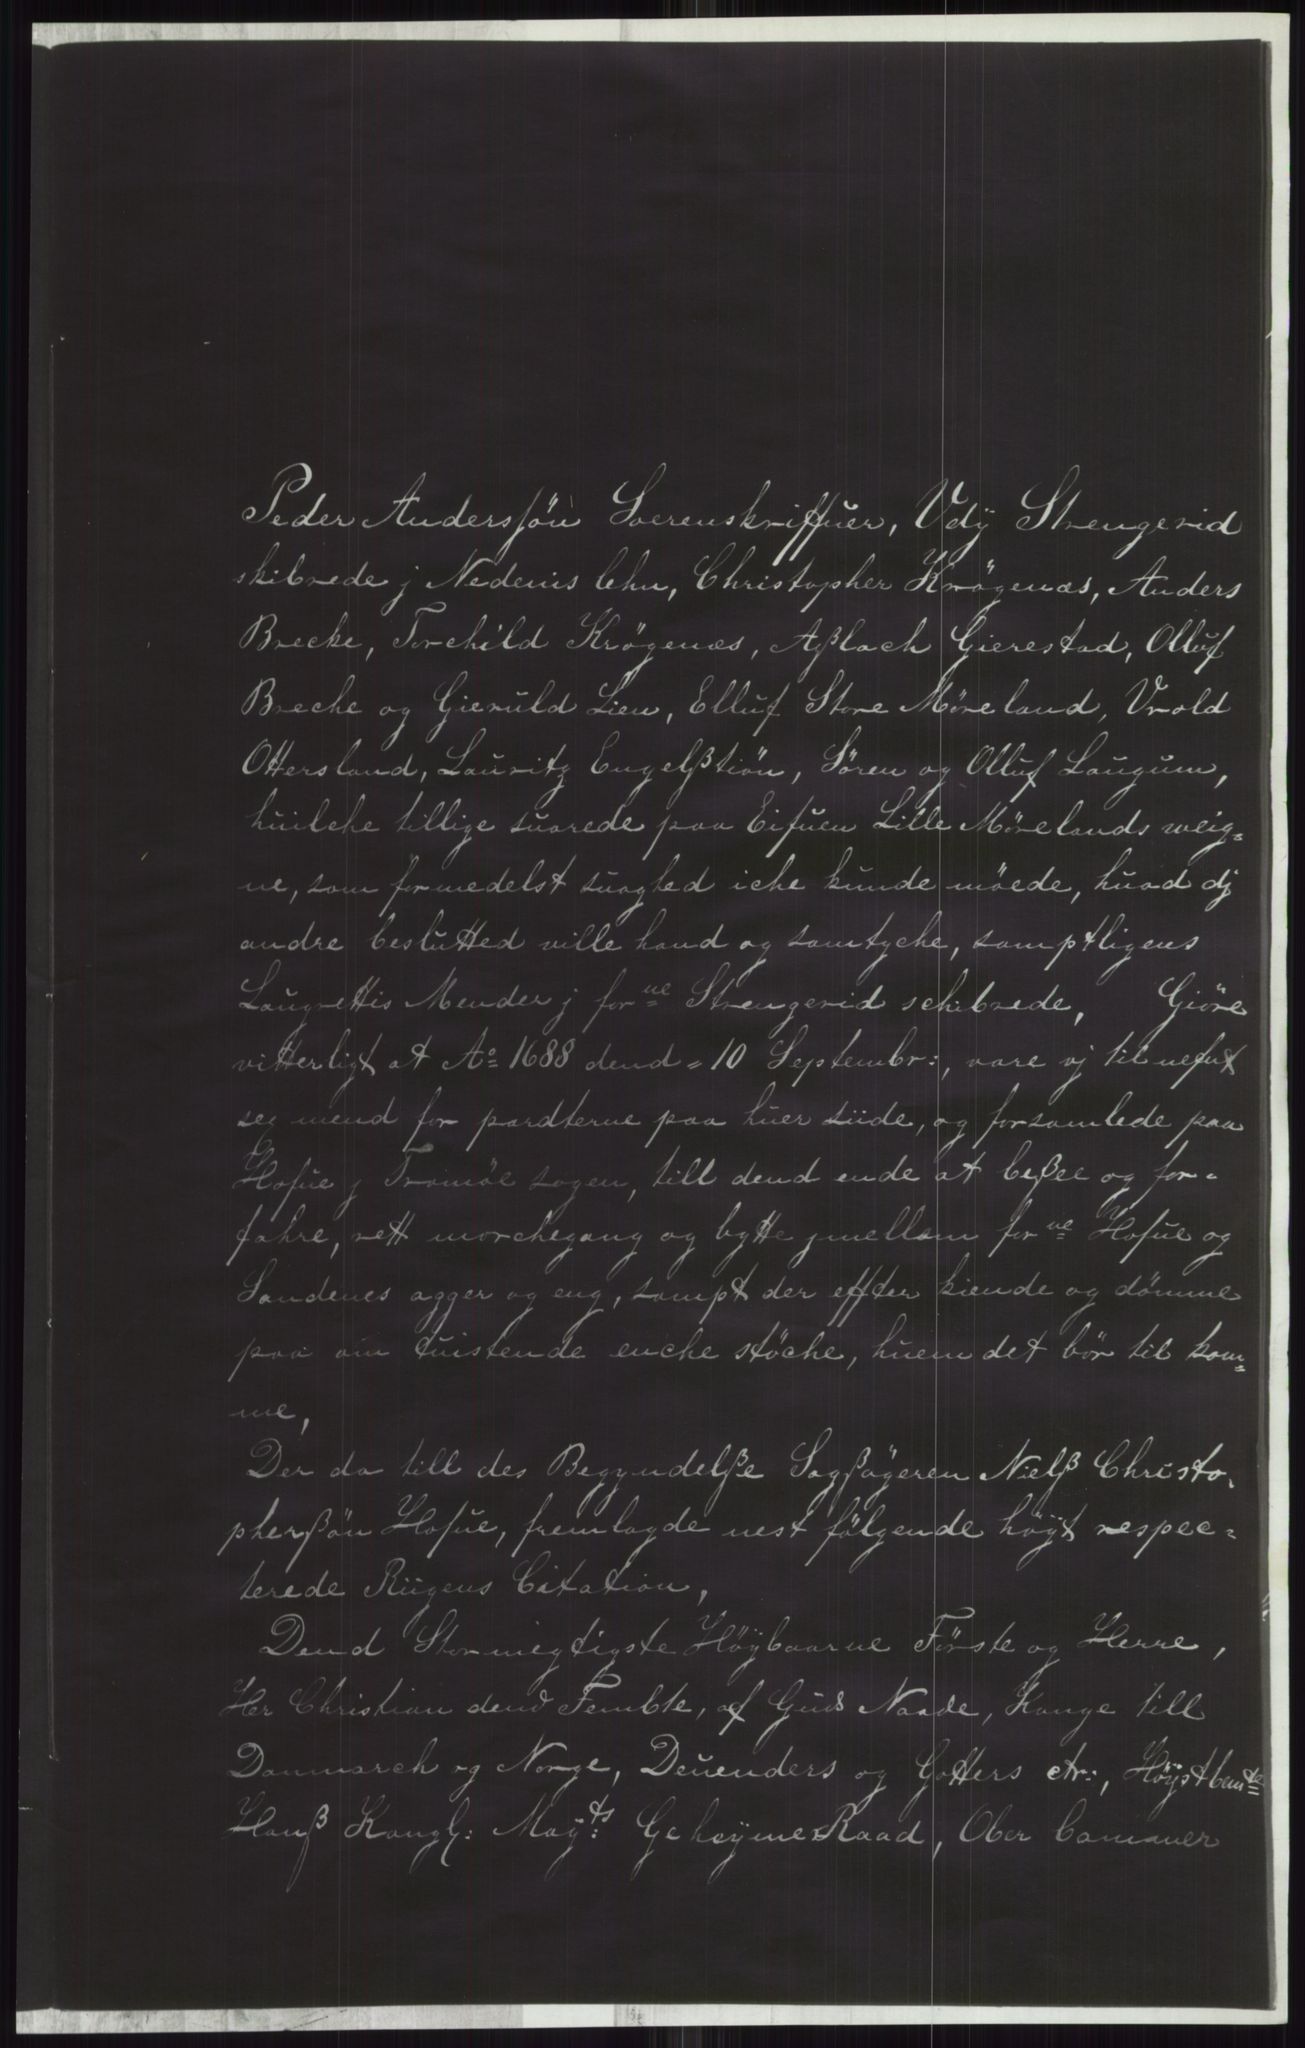 Peder Anderssön Soerenskriffuer, Vdÿ Strengerid
skibrede j Nedenis lehn, Christopher Krögenæs, Anders
Brecke, Torchild Krögenæs, Aßlach Gierestad, Olluf
Breche og Gieruld Lien, Elluf Store Möreland, Vrold
Ottersland, Lauritz Engelßtiön, Sören og Olluf Laugum,
huilche tillige suarede paa Eifuen Lille Mörelands weig=
ne, som formedelst suaghed iche kunde möede, huad dj
andre beslutted ville hand og samtyche, samptligens
Laugrettis Mender j for ne Strengerid schibrede, Giöre
vitterligt at Ao 1688 dend 10 Septembr:, vare vj til nefnt
sex mend for pardterne paa huer siide, og forsamlede paa
Hofue j Tromöe sogen, till dend ende at beßee og for=
fahre, rett marchegang og bytte jmellem for ne Hofue og
Sandenes agger og eng, sampt der effter kiende og dömme
paa om tuistende enche stöche, huem det bör til kom=
me,
Der da till des Begyndelße Sagßögeren Nielß Christo=
pherßön Hofue, fremlagde nest fölgende höyt respec=
terede Riigens Citation,
Dend Stormegtigste Höÿbaarne Förste og Herre,
Her Christian dend Fembte, af Guds Naade, Konge till
Danmarch og Norge, Deuenders og Gotters etr:, Höÿstbemte
Hanß Kongl: Maÿts: Geheÿme Raad, Ober Camмer